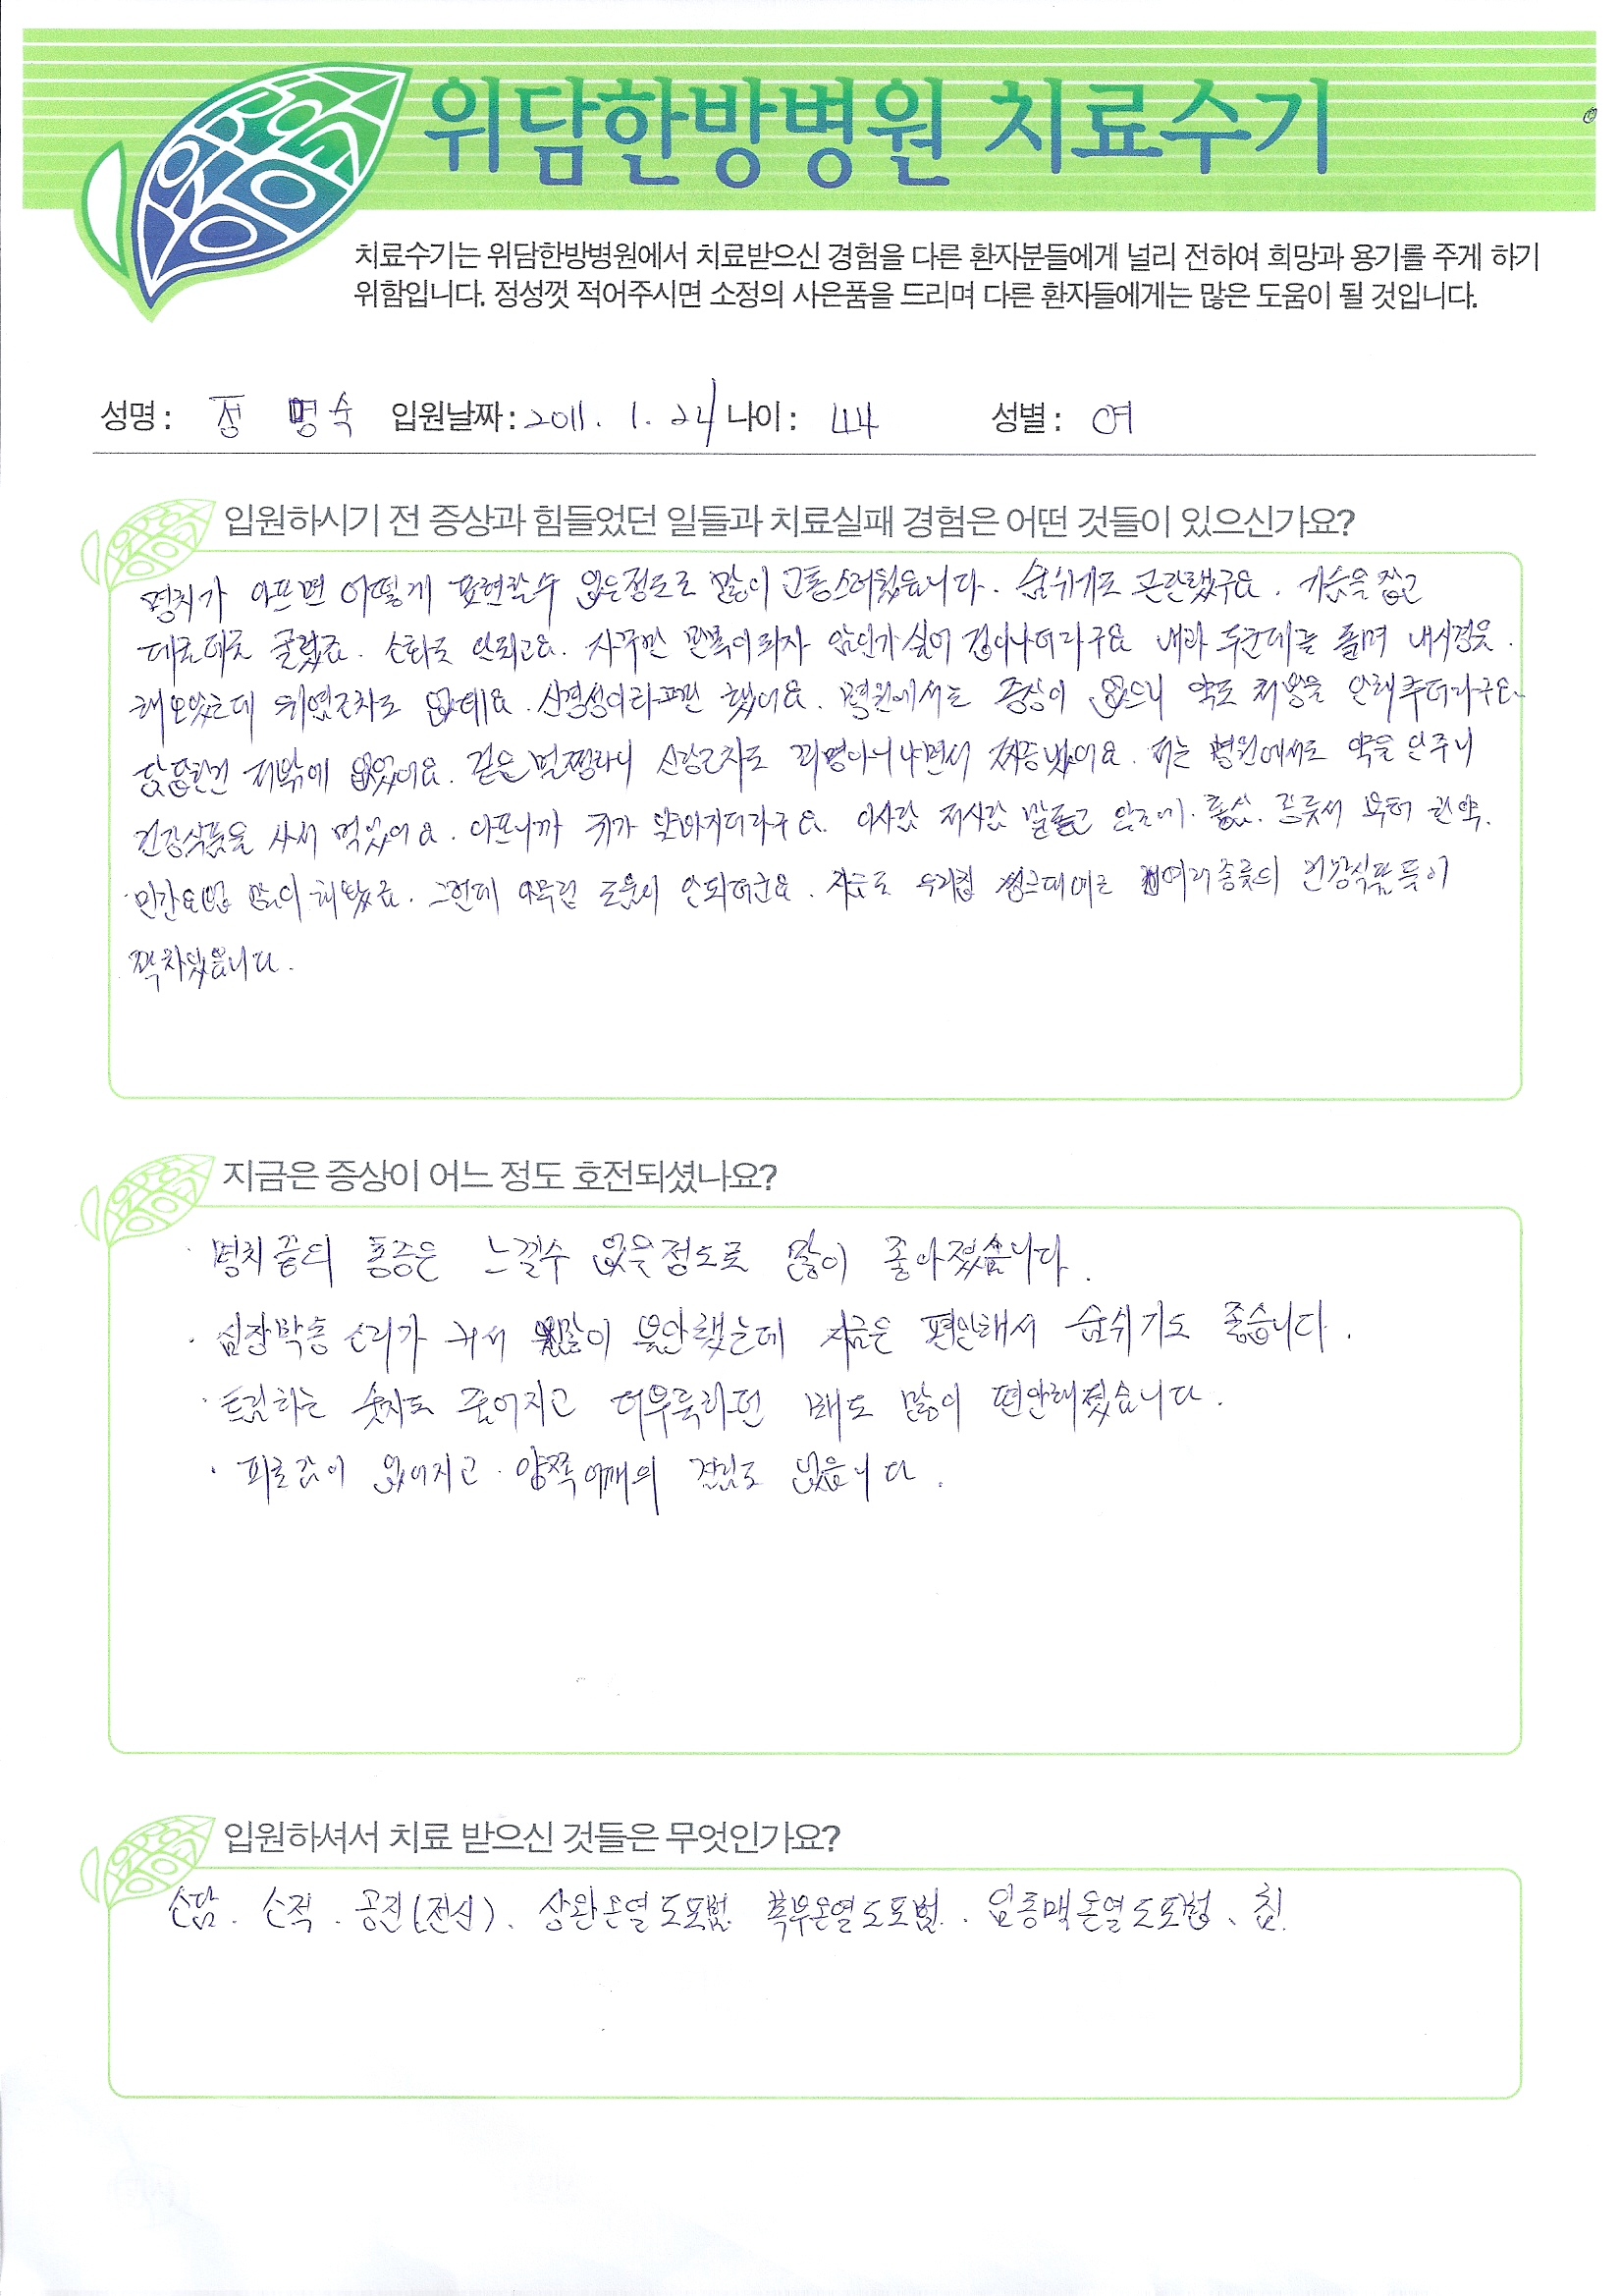 위담한방병원 치료수기
치료수기는 위담한방병원에서 치료받으신 경험을 다른 환자분들에게 널리 전하여 희망과 용기를 주게 하기
위함입니다. 정성껏 적어주시면 소정의 사은품을 드리며 다른 환자들에게는 많은 도움이 될 것입니다.
성명 : 정 명숙 입원날짜 : 2011. 1. 24 나이 : 44 성별 : 여
입원하시기 전 증상과 힘들었던 일들과 치료실패 경험은 어떤 것들이 있으신가요?
명치가 아프면 어떻게 표현할수 없을정도로 많이 고통스러웠습니다. 숨쉬기도 곤란했구요. 가슴을 잡고
데로데로 굴렀죠. 소화도 안되고요. 자꾸만 반복이되자 암인가싶어 겁이나더라구요 내과 두군데를 돌며 내시경을.
해보았는데 위염조차도 없데요. 신경성이라고만 했어요. 병원에서는 증상이 없으니 약도 처방을 안해주더라구요.
답답한건 저밖에 없었어요. 겉은 멀쩡하니 신랑조차도 꾀병아니냐면서 짜증냈어요. 저는 병원에서도 약을 안주니
건강식품을 사서 먹었어요. 아프니까 귀가 얇아지더라구요. 이사람 저사람 말듣고 부터 한약.
민간요법 많이 해봤죠. 그런데 아무런 도움이 안되더군요. 지금도 우리집 씽크대에는 여러종류의 건강식품들이
꽉차있습니다.
지금은 증상이 어느 정도 호전되셨나요?
· 명치끝의 통증은 느낄수 없을정도로 많이 좋아졌습니다.
· 심장박동 소리가 커서 많이 불안했는데 지금은 편안해서 숨쉬기도 좋습니다.
· 트림하는 숫자도 줄어지고 더부룩하던 배도 많이 편안해졌습니다.
· 피로감이 없어지고 양쪽어깨의 결림도 없습니다.
입원하셔서 치료 받으신 것들은 무엇인가요?
소담. 소적. 공진(전신). 상완온열도포법 복부온열도포법. 임종맥온열도포법. 침.